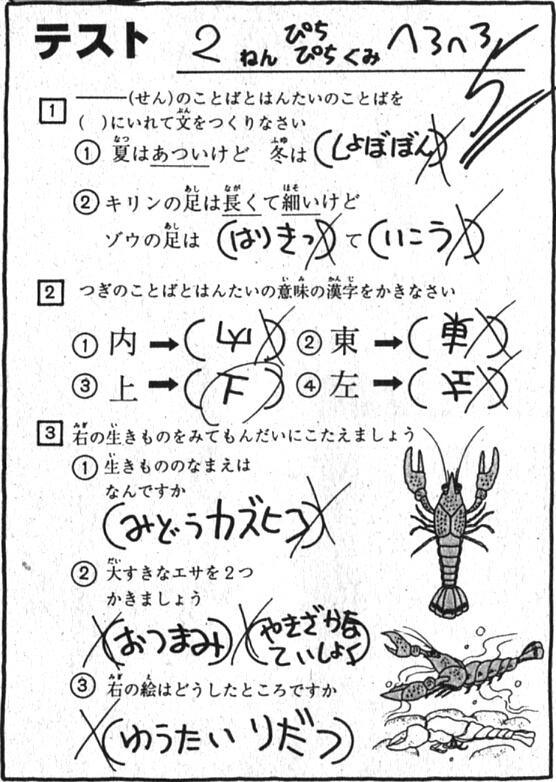 テスト 2ねん ぴちぴちくみ へろへろ
5
1 ―――(せん)のことばとはんたいのことばを
( )にいれて文をつくりなさい
① 夏はあついけど 冬は(しょぼぼん)
② キリンの足は長くて細いけど
ゾウの足は(はりきっ)て(いこう)
2 つぎのことばとはんたいの意味の漢字をかきなさい
① 内→( ) ② 東→( )
③ 上→(下) ④ 左→( )
3 右の生きものをみてもんだいにこたえましょう
① 生きもののなまえは
なんですか
(みどうカズヒコ)
② 大すきなエサを2つ
かきましょう
(おつまみ)(やきざかな
ていしょく)
③ 右の絵はどうしたところですか
(ゆうたいりだつ)